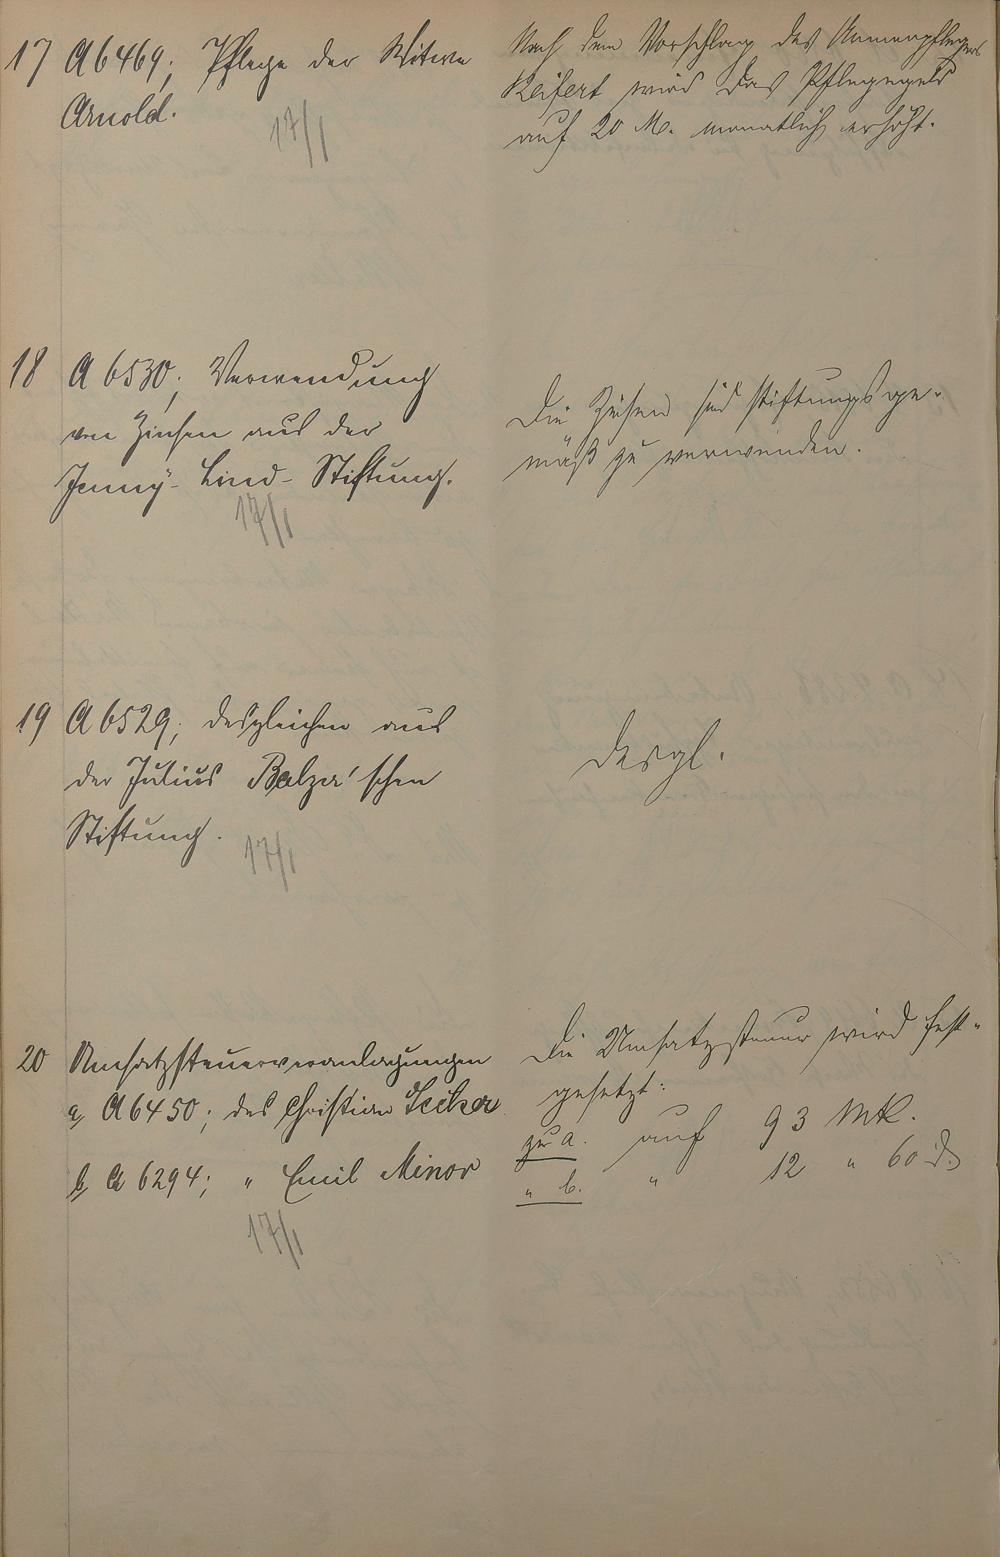 17 A 6469; Pflege der Witwe
Arnold.
17/I
Nach dem Vorschlag des Armenpflegers
Keifert wird das Pflegegeld
auf 20 M. monatlich erhöht.
18 A 6530; Verwendung
von Zinsen aus der
Jenny-Lind-Stiftung.
17/I
Die Zinsen sind stiftungsge-
mäß zu verwenden.
19 A 6529; desgleichen aus
der Julius Balza'schen
Stiftung.
17/I
desgl.
20 Umsatzsteuerveranlagungen
a, A 6450; des Christian
b, A 6294; " Emil Minor
17/I
Die Umsatzsteuer wird fest-
gesetzt:
zu a. auf 93 Mk.
" b. " 12 " 60 d.